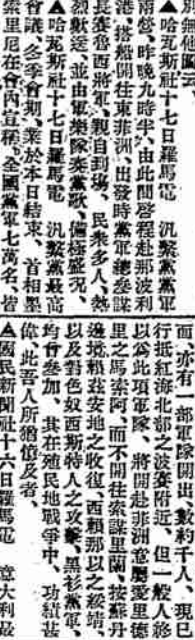 別無他圖云
▲哈瓦斯社十七日羅馬電　汎繫黨黨軍
兩營、昨晚九時半、由此間啓程赴那波利
港、搭船開往東非洲、出發時黨軍總參謀
長賽魯西將軍、親自到塲、民衆多人、熱
烈歡送、並由軍樂隊奏黨歌、備極盛况、
▲哈瓦斯社十七日羅馬電　汎繫黨最高
會議、冬季會期、業於本日結束、首相墨
索里尼在會內宣稱、全國黨軍七萬名、皆
而、亦有一部軍隊開出、數約千人、現已
行抵紅海北部之波賽附近、但一般人
以爲此項軍隊、將開赴非洲意屬愛里德
里之馬索阿、而不開往索謀里蘭、按蘇丹
邊境賴茲安地之收復、西賴那以之綏靖、
以及對色奴西斯特人之攻擊、黑衫黨軍、
均曾參加、其在殖民地戰爭中、功績甚
偉、此吾人所猶憶及者、
▲國民新聞社十六日羅馬電　意大利最